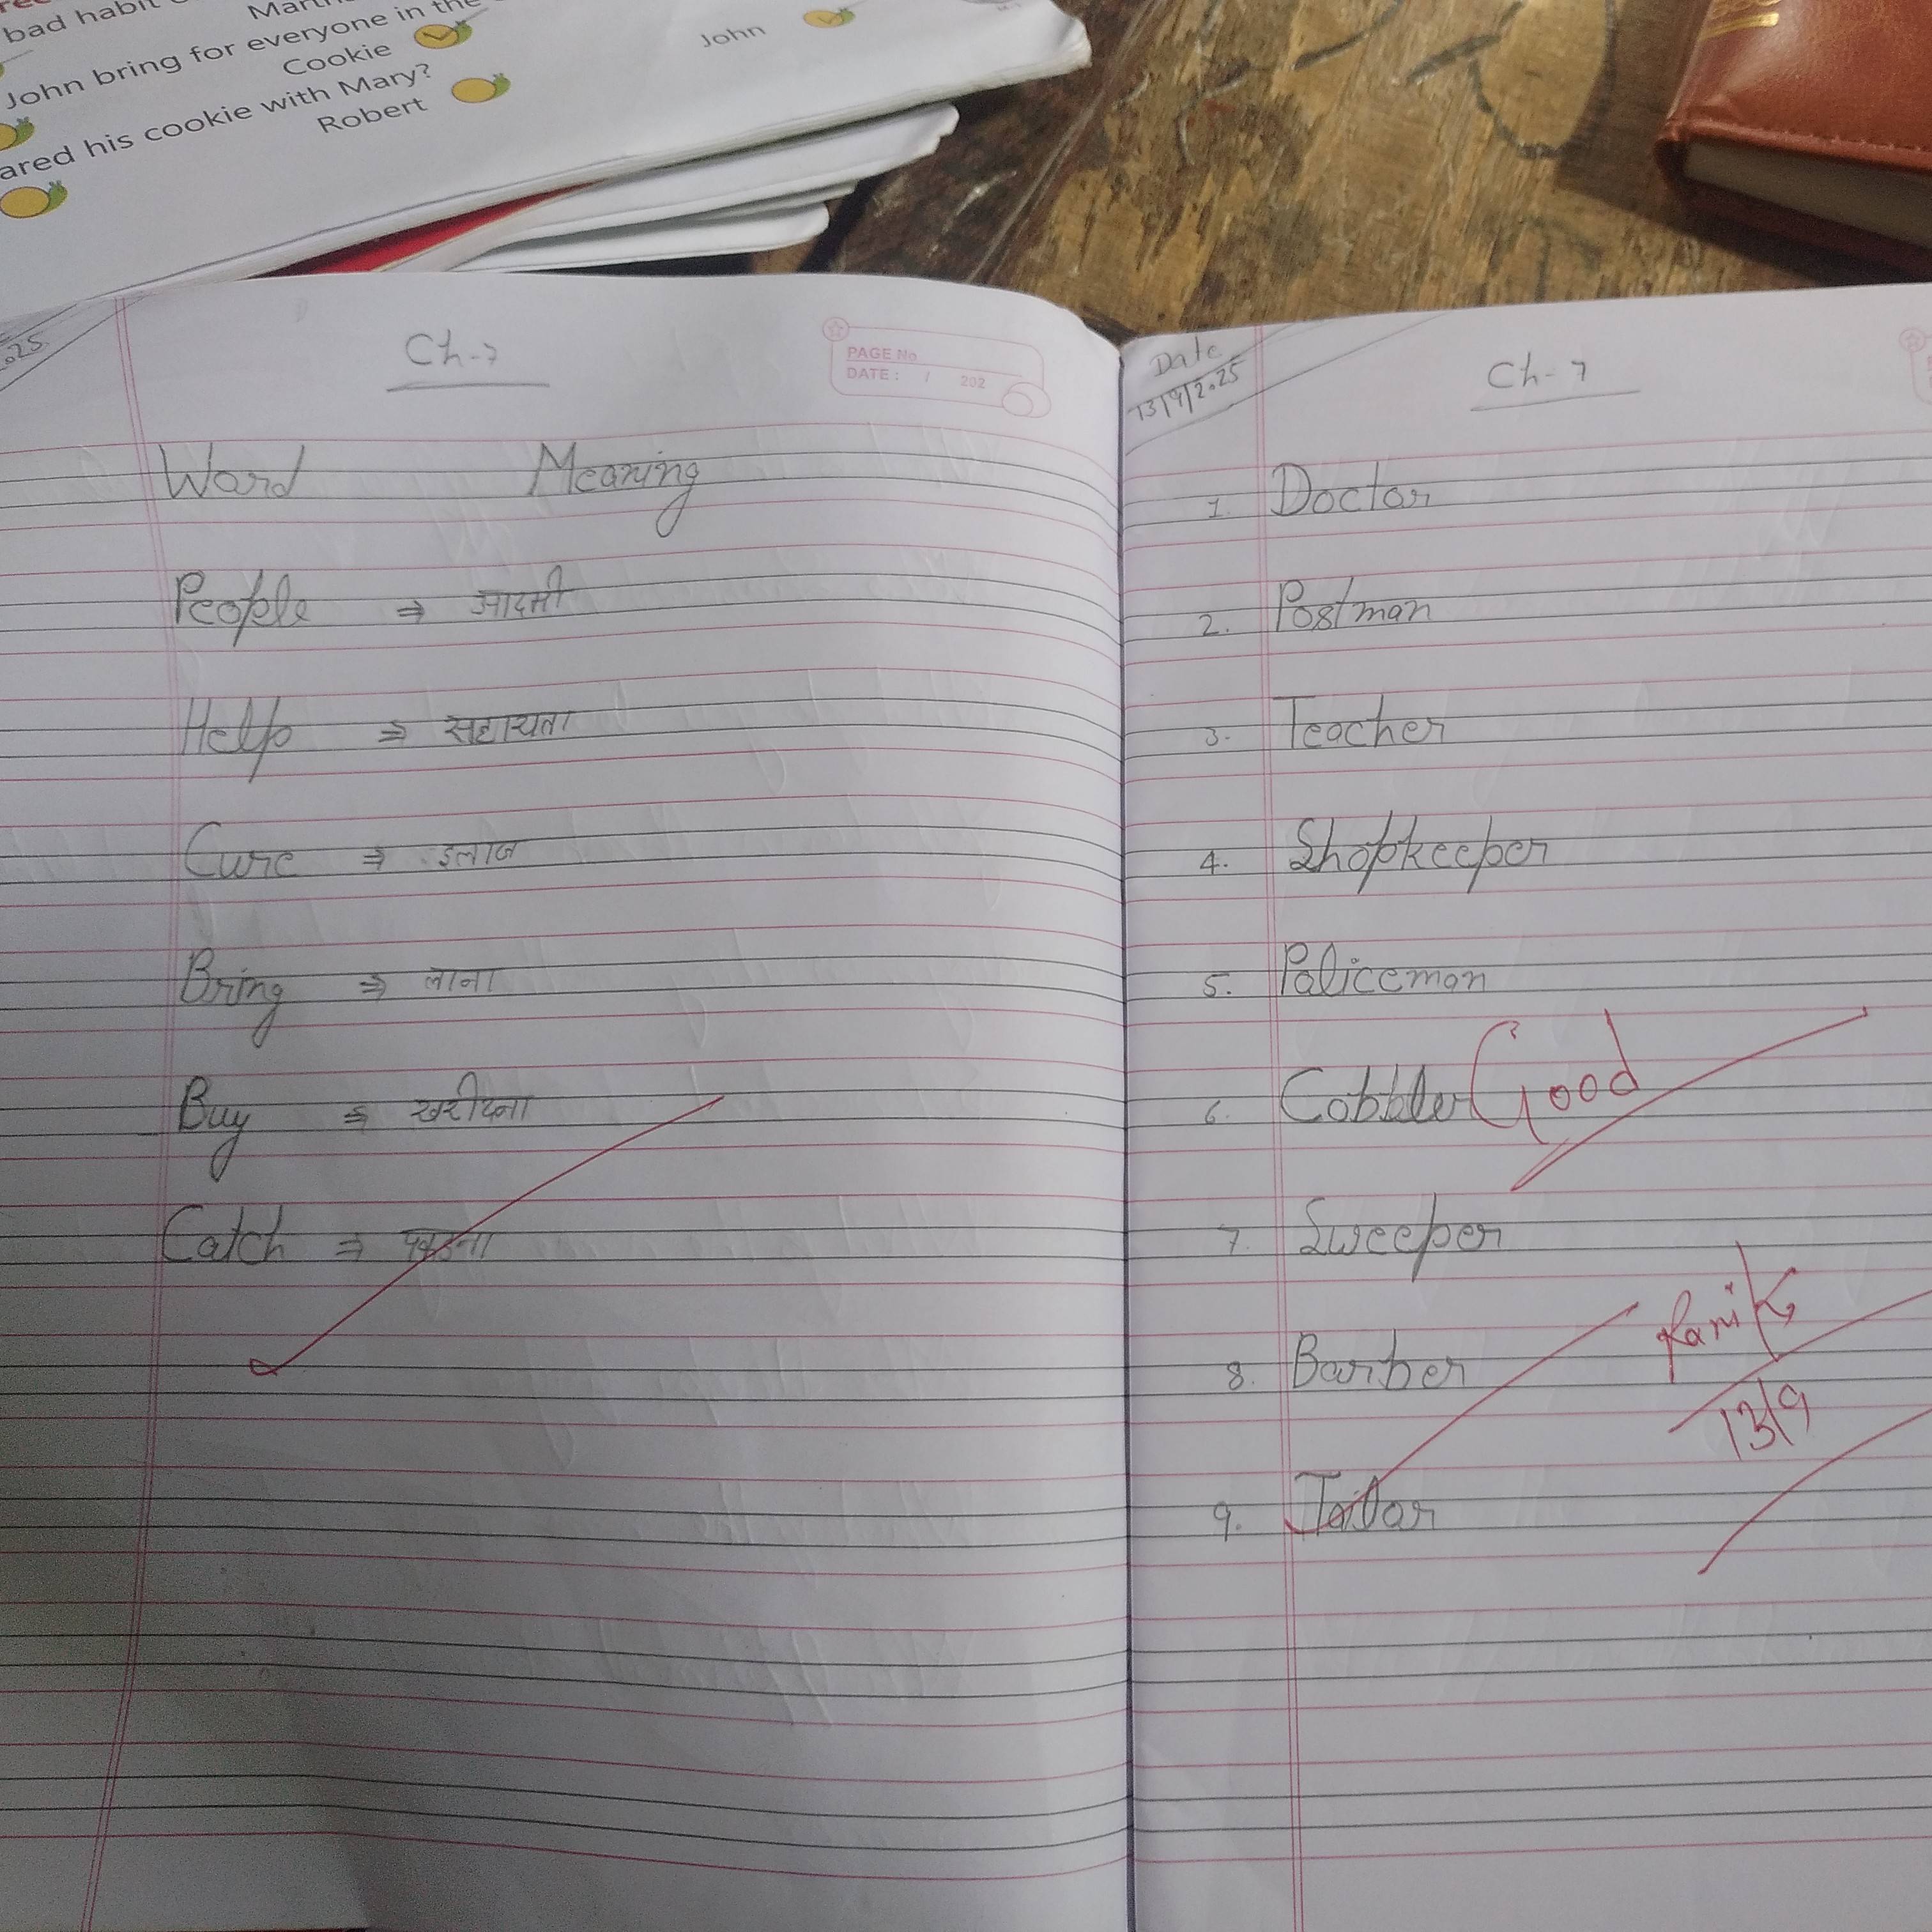 bad habit
John bring for everyone in the
Cookie
John
ared his cookie with Mary?
Robert
.25
Ch-7
PAGE No
DATE : / 202
Word Meaning
People ⇒ आदमी
Help ⇒ सहायता
Cure ⇒ इलाज
Bring ⇒ लाना
Buy ⇒ खरीदना
Catch ⇒ पकड़ना
Date
13/9/2025
Ch-7
1. Doctor
2. Postman
3. Teacher
4. Shopkeeper
5. Policeman
6. Cobbler Good
7. Sweeper
8. Barber
13/9
9. Tailor